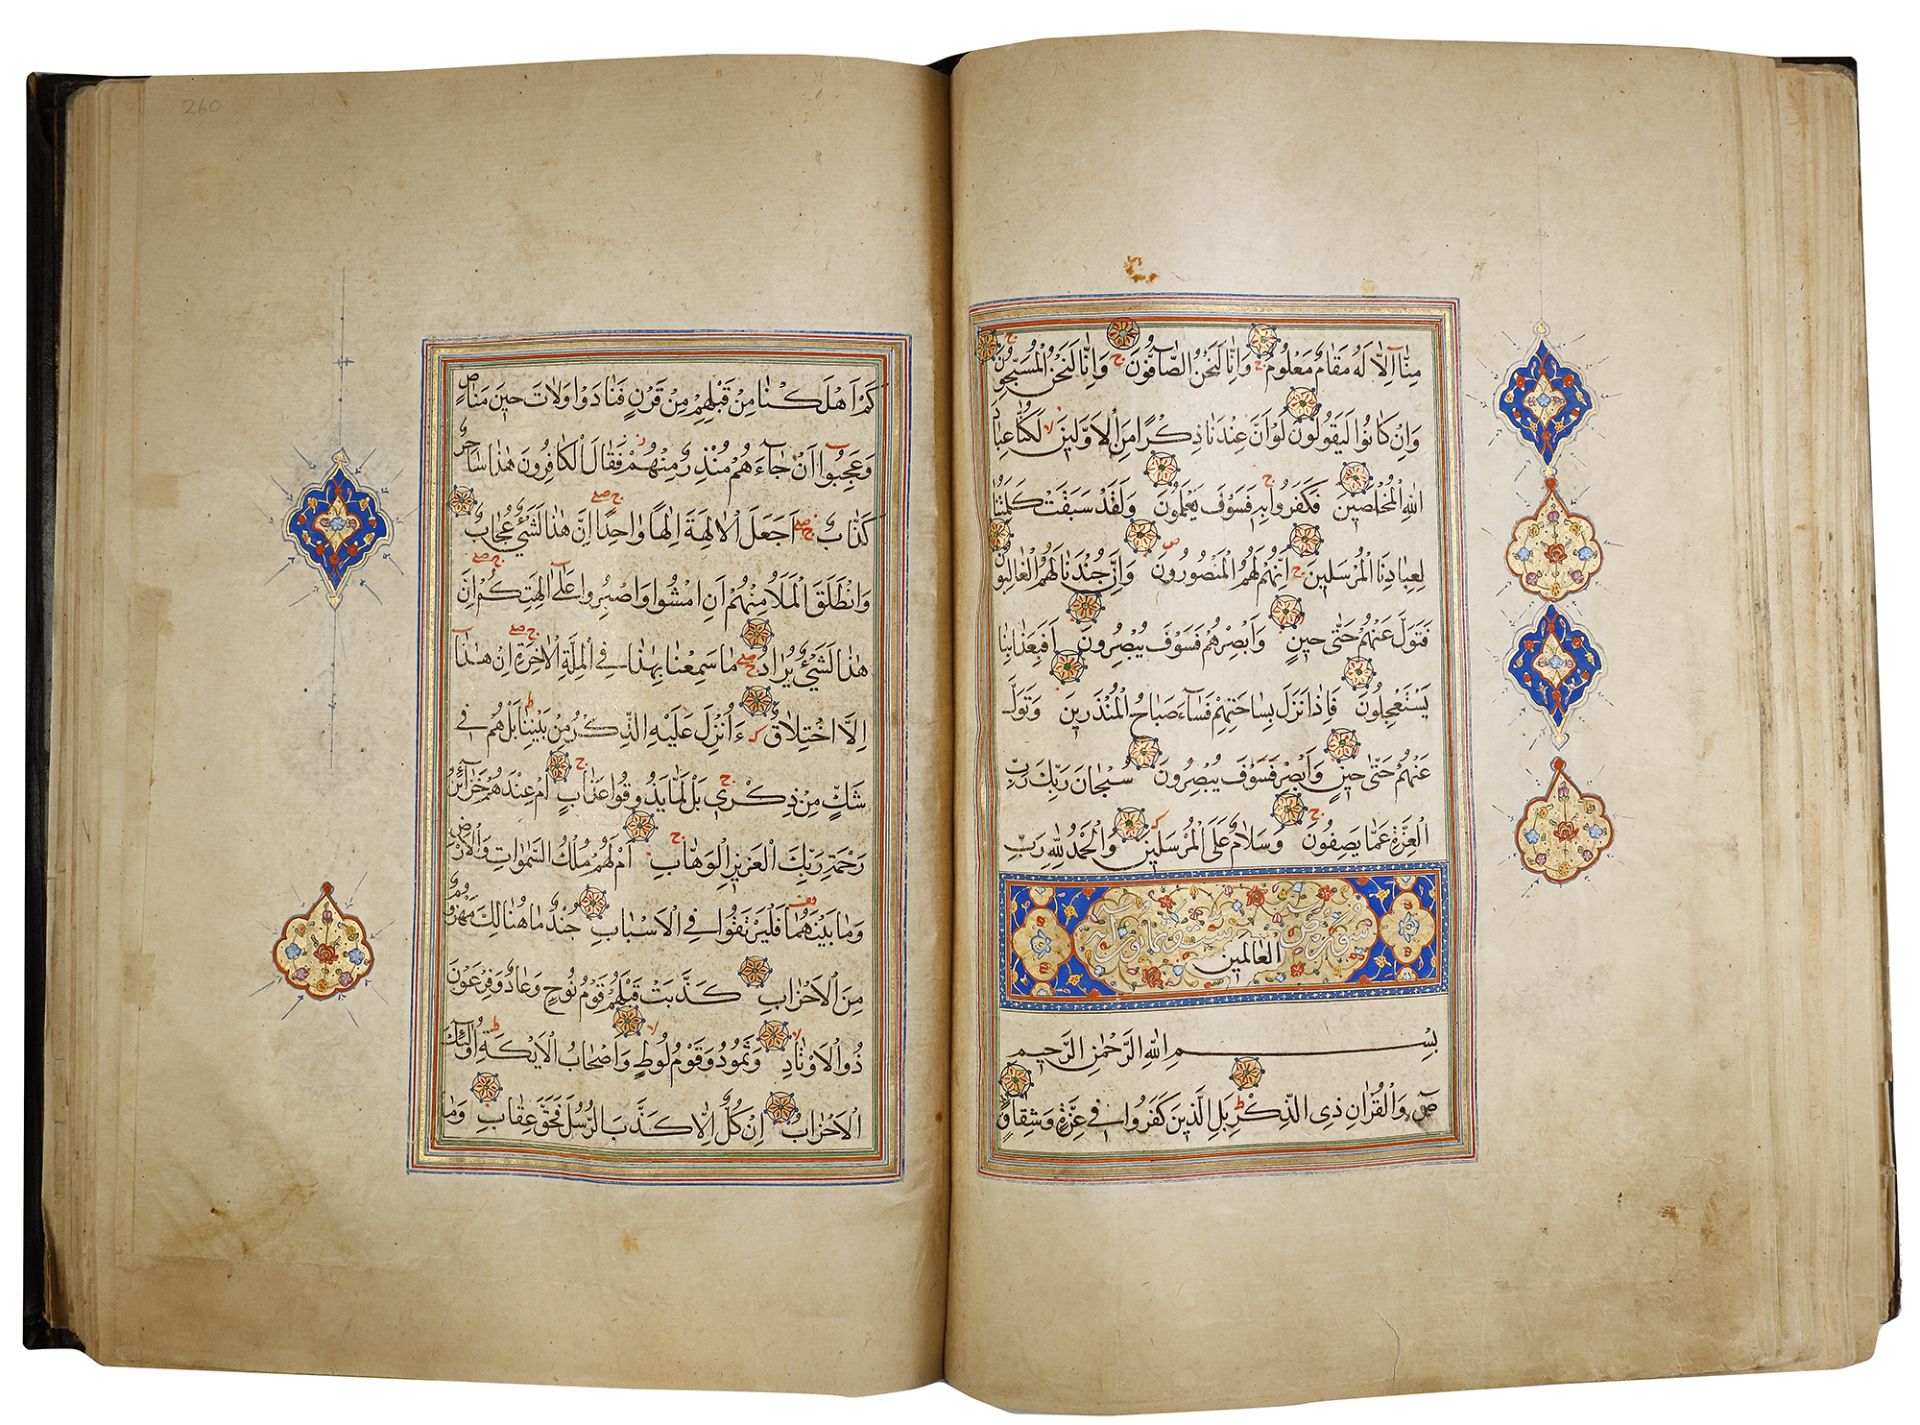 مِنَّآ اِلَّا لَهُ مَقَامٌ مَعْلُومٌ ج وَاِنَّا لَنَحْنُ الصَّآفُّونَ ج وَاِنَّا لَنَحْنُ الْمُسَبِّحُونَ ج
وَاِنْ كَانُوا لَيَقُولُونَ لَوْ اَنَّ عِنْدَنَا ذِكْرًا مِنَ الْاَوَّلِينَ لا لَكُنَّا عِبَادَ
اللهِ الْمُخْلَصِينَ فَكَفَرُوا بِهِ ج فَسَوْفَ يَعْلَمُونَ وَلَقَدْ سَبَقَتْ كَلِمَتُنَا
لِعِبَادِنَا الْمُرْسَلِينَ ج اِنَّهُمْ لَهُمُ الْمَنْصُورُونَ ص وَاِنَّ جُنْدَنَا لَهُمُ الْغَالِبُونَ
فَتَوَلَّ عَنْهُمْ حَتّٰى حِينٍ وَاَبْصِرْهُمْ فَسَوْفَ يُبْصِرُونَ اَفَبِعَذَابِنَا
يَسْتَعْجِلُونَ فَاِذَا نَزَلَ بِسَاحَتِهِمْ فَسَآءَ صَبَاحُ الْمُنْذَرِينَ وَتَوَلَّ
عَنْهُمْ حَتّٰى حِينٍ وَاَبْصِرْ فَسَوْفَ يُبْصِرُونَ سُبْحَانَ رَبِّكَ رَبِّ
الْعِزَّةِ عَمَّا يَصِفُونَ ج وَسَلَامٌ عَلَى الْمُرْسَلِينَ وَالْحَمْدُ لِلّٰهِ رَبِّ
سورة ص
الْعَالَمِينَ
بِسْمِ اللهِ الرَّحْمٰنِ الرَّحِيمِ
صٓ وَالْقُرْاٰنِ ذِى الذِّكْرِ ط بَلِ الَّذِينَ كَفَرُوا فِى عِزَّةٍ وَشِقَاقٍ
260
كَمْ اَهْلَكْنَا مِنْ قَبْلِهِمْ مِنْ قَرْنٍ فَنَادَوْا وَلَاتَ حِينَ مَنَاصٍ
وَعَجِبُوٓا اَنْ جَآءَهُمْ مُنْذِرٌ مِنْهُمْ وَقَالَ الْكَافِرُونَ هٰذَا سَاحِرٌ
كَذَّابٌ ج صلے اَجَعَلَ الْاٰلِهَةَ اِلٰهًا وَاحِدًا ج صلے اِنَّ هٰذَا لَشَيْءٌ عُجَابٌ
وَانْطَلَقَ الْمَلَاُ مِنْهُمْ اَنِ امْشُوا وَاصْبِرُوا عَلٰٓى اٰلِهَتِكُمْ ج صلے اِنَّ
هٰذَا لَشَيْءٌ يُرَادُ ج صلے مَا سَمِعْنَا بِهٰذَا فِى الْمِلَّةِ الْاٰخِرَةِ ج صلے اِنْ هٰذَآ
اِلَّا اخْتِلَاقٌ ءَاُنْزِلَ عَلَيْهِ الذِّكْرُ مِنْ بَيْنِنَا ط بَلْ هُمْ فِى
شَكٍّ مِنْ ذِكْرِى ج بَلْ لَمَّا يَذُوقُوا عَذَابِ ج اَمْ عِنْدَهُمْ خَزَآئِنُ
رَحْمَةِ رَبِّكَ الْعَزِيزِ الْوَهَّابِ ج اَمْ لَهُمْ مُلْكُ السَّمٰوَاتِ وَالْاَرْضِ
وَمَا بَيْنَهُمَا فَلْيَرْتَقُوا فِى الْاَسْبَابِ جُنْدٌ مَا هُنَالِكَ مَهْزُومٌ
مِنَ الْاَحْزَابِ كَذَّبَتْ قَبْلَهُمْ قَوْمُ نُوحٍ وَعَادٌ وَفِرْعَوْنُ
ذُو الْاَوْتَادِ لا وَثَمُودُ وَقَوْمُ لُوطٍ وَاَصْحَابُ الْاَيْكَةِ ط اُولٰٓئِكَ
الْاَحْزَابُ اِنْ كُلٌّ اِلَّا كَذَّبَ الرُّسُلَ فَحَقَّ عِقَابِ وَمَا